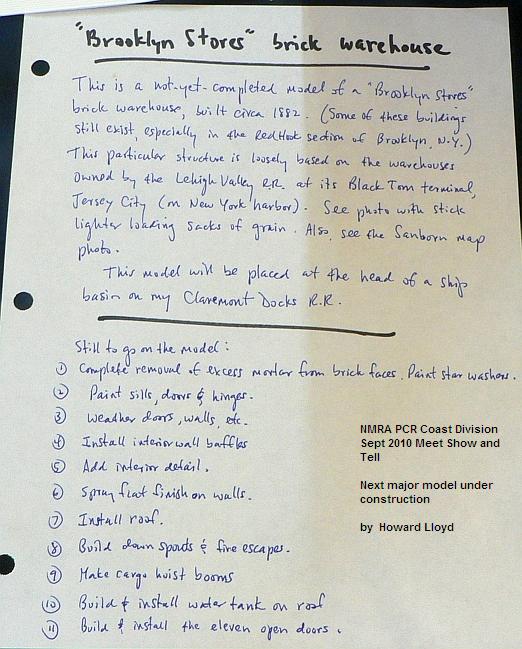 "Brooklyn Stores" brick warehouse
This is a not-yet-completed model of a "Brooklyn Stores"
brick warehouse, built circa 1882. (Some of these buildings
still exist, especially in the Red Hook section of Brooklyn, N.Y.)
This particular structure is loosely based on the warehouses
owned by the Lehigh Valley R.R. at its Black Tom terminal,
Jersey City (on New York harbor). See photo with stick
lighter loading sacks of grain. Also, see the Sanborn map
photo.
This model will be placed at the head of a ship
basin on my Claremont Docks R.R.
Still to go on the model:
① Complete removal of excess mortar from brick faces. Paint star washers.
② Paint sills, doors & hinges.
③ Weather doors, walls, etc.
④ Install interior wall baffles
⑤ Add interior detail.
⑥ Spray flat finish on walls.
⑦ Install roof.
⑧ Build down spouts & fire escapes.
⑨ Make cargo hoist booms
⑩ Build & install water tank on roof
⑪ Build & install the eleven open doors.
NMRA PCR Coast Division
Sept 2010 Meet Show and
Tell
Next major model under
construction
by Howard Lloyd